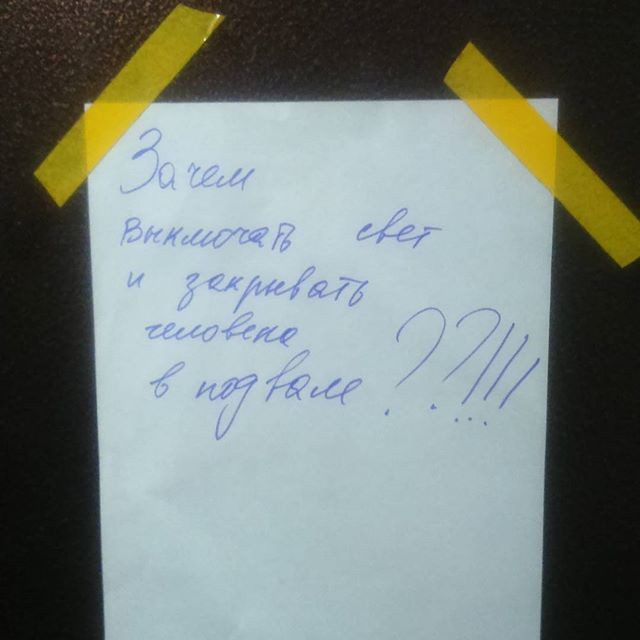 Зачем
выключать свет
и закрывать
человека
в подвале ??!!!